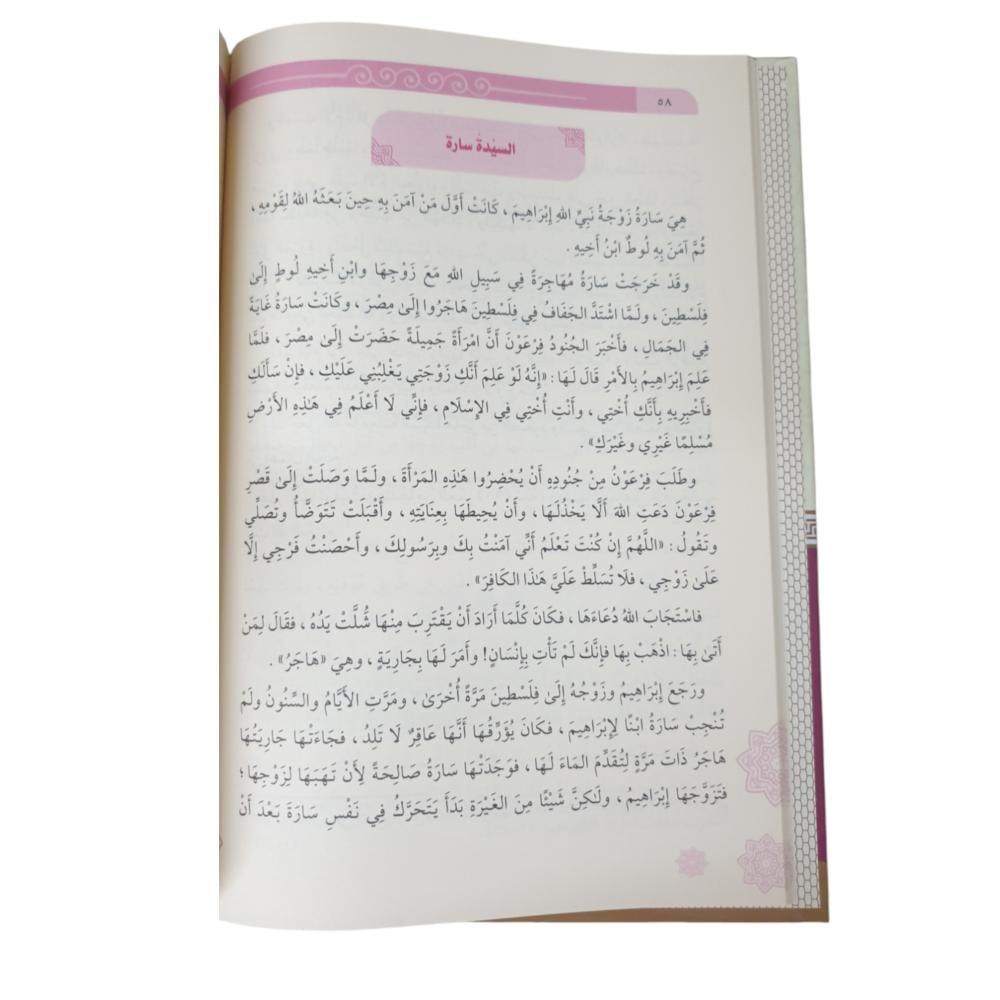 ٥٨
السيّدةُ سارة
هِيَ سَارَةُ زَوْجَةُ نَبِيِّ اللهِ إِبْرَاهِيمَ ، كَانَتْ أَوَّلَ مَنْ آمَنَ بِهِ حِينَ بَعَثَهُ اللهُ لِقَوْمِهِ ،
ثُمَّ آمَنَ بِهِ لُوطٌ ابْنُ أَخِيهِ .
وقَدْ خَرَجَتْ سَارَةُ مُهَاجِرَةً فِي سَبِيلِ اللهِ مَعَ زَوْجِهَا وابْنِ أَخِيهِ لُوطٍ إِلَىٰ
فِلَسْطِينَ ، ولَـمَّا اشْتَدَّ الجَفَافُ فِي فِلَسْطِينَ هَاجَرُوا إِلَىٰ مِصْرَ ، وكَانَتْ سَارَةُ غَايَةً
فِي الجَمَالِ ، فأَخْبَرَ الجُنُودُ فِرْعَوْنَ أَنَّ امْرَأَةً جَمِيلَةً حَضَرَتْ إِلَىٰ مِصْرَ ، فلَمَّا
عَلِمَ إِبْرَاهِيمُ بِالأَمْرِ قَالَ لَـهَا : «إِنَّهُ لَوْ عَلِمَ أَنَّكِ زَوْجَتِي يَغْلِبُنِي عَلَيْكِ ، فإِنْ سَأَلَكِ
فأَخْبِرِيهِ بِأَنَّكِ أُخْتِي ، وأَنْتِ أُخْتِي فِي الإِسْلَامِ ، فإِنِّي لَا أَعْلَمُ فِي هَـٰذِهِ الأَرْضِ
مُسْلِمًا غَيْرِي وغَيْرَكِ» .
وطَلَبَ فِرْعَوْنُ مِنْ جُنُودِهِ أَنْ يُحْضِرُوا هَـٰذِهِ المَرْأَةَ ، ولَـمَّا وَصَلَتْ إِلَىٰ قَصْرِ
فِرْعَوْنَ دَعَتِ اللهَ أَلَّا يَخْذُلَـهَا ، وأَنْ يُحِيطَهَا بِعِنَايَتِهِ ، وأَقْبَلَتْ تَتَوَضَّأُ وتُصَلِّي
وتَقُولُ : «اللَّهُمَّ إِنْ كُنْتَ تَعْلَمُ أَنِّي آمَنْتُ بِكَ وبِرَسُولِكَ ، وأَحْصَنْتُ فَرْجِي إِلَّا
عَلَىٰ زَوْجِي ، فلَا تُسَلِّطْ عَلَيَّ هَذَا الكَافِرَ» .
فاسْتَجَابَ اللهُ دُعَاءَهَا ، فكَانَ كُلَّمَا أَرَادَ أَنْ يَقْتَرِبَ مِنْهَا شُلَّتْ يَدُهُ ، فقَالَ لِمَنْ
أَتَىٰ بِهَا : اذْهَبْ بِهَا فإِنَّكَ لَمْ تَأْتِ بِإِنْسَانٍ! وأَمَرَ لَـهَا بِجَارِيَةٍ ، وهِيَ «هَاجَرُ» .
ورَجَعَ إِبْرَاهِيمُ وزَوْجُهُ إِلَىٰ فِلَسْطِينَ مَرَّةً أُخْرَىٰ ، ومَرَّتِ الأَيَّامُ والسِّنُونُ ولَمْ
تُنْجِبْ سَارَةُ ابْنًا لِإِبْرَاهِيمَ ، فكَانَ يُؤَرِّقُهَا أَنَّهَا عَاقِرٌ لَا تَلِدُ ، فجَاءَتْهَا جَارِيَتُهَا
هَاجَرُ ذَاتَ مَرَّةٍ لِتُقَدِّمَ المَاءَ لَـهَا ، فوَجَدَتْهَا سَارَةُ صَالِحَةً لِأَنْ تَهَبَهَا لِزَوْجِهَا ؛
فتَزَوَّجَهَا إِبْرَاهِيمُ ، ولَـٰكِنَّ شَيْئًا مِنَ الغَيْرَةِ بَدَأَ يَتَحَرَّكُ فِي نَفْسِ سَارَةَ بَعْدَ أَنْ